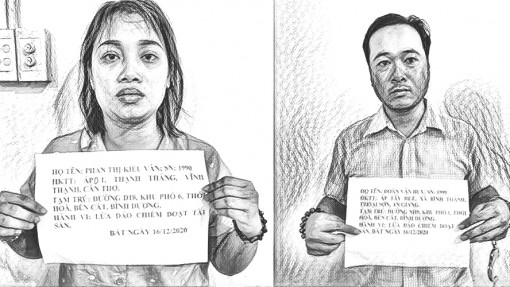 HỌ TÊN: PHAN THỊ KIỀU VÂN; SN: 1990
HKTT: ẤP 1, THẠNH THẮNG, VĨNH
THẠNH, CẦN THƠ.
TẠM TRÚ: ĐƯỜNG D18, KHU PHỐ 6, THỚI
HOÀ, BẾN CÁT, BÌNH DƯƠNG.
HÀNH VI: LỪA ĐẢO CHIẾM ĐOẠT TÀI
SẢN.
BẮT NGÀY 16/12/2020
HỌ TÊN: ĐOÀN VĂN HUY, SN: 1990
HKTT: ẤP TÂY HUỀ, XÃ BÌNH THẠNH,
THOẠI SƠN, AN GIANG.
TẠM TRÚ: ĐƯỜNG KHU PHỐ THỚI
HOÀ, BẾN CÁT, BÌNH DƯƠNG.
HÀNH VI: LỪA ĐẢO CHIẾM ĐOẠT TÀI
SẢN. BẮT NGÀY 16/12/2020